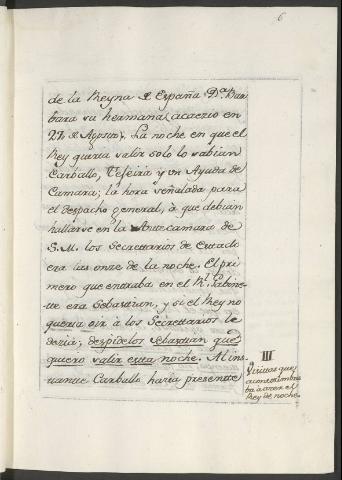 6
de la Reyna de España D.ª Bar
bara su hermana (acaecio en
27 de Agosto). La noche en que el
Rey queria salir solo lo sabian
Carballo, Teseira y un Ayuda de
Camara; la hora señalada para
el despacho general, à que debian
hallarse en la Ante camara de
S. M. los Secretarios de Estado
era las onze de la noche. El pri
mero que entraba en el R.l Gabine
te era Sebastian, y si el Rey no
queria oir à los Secretarios le
dezia; despidelos Sebastian que
quiero salir esta noche. Al ins
tante Carballo hacia presente
III
Visitas que
acostumbra
ba à hacer el
Rey de noche.